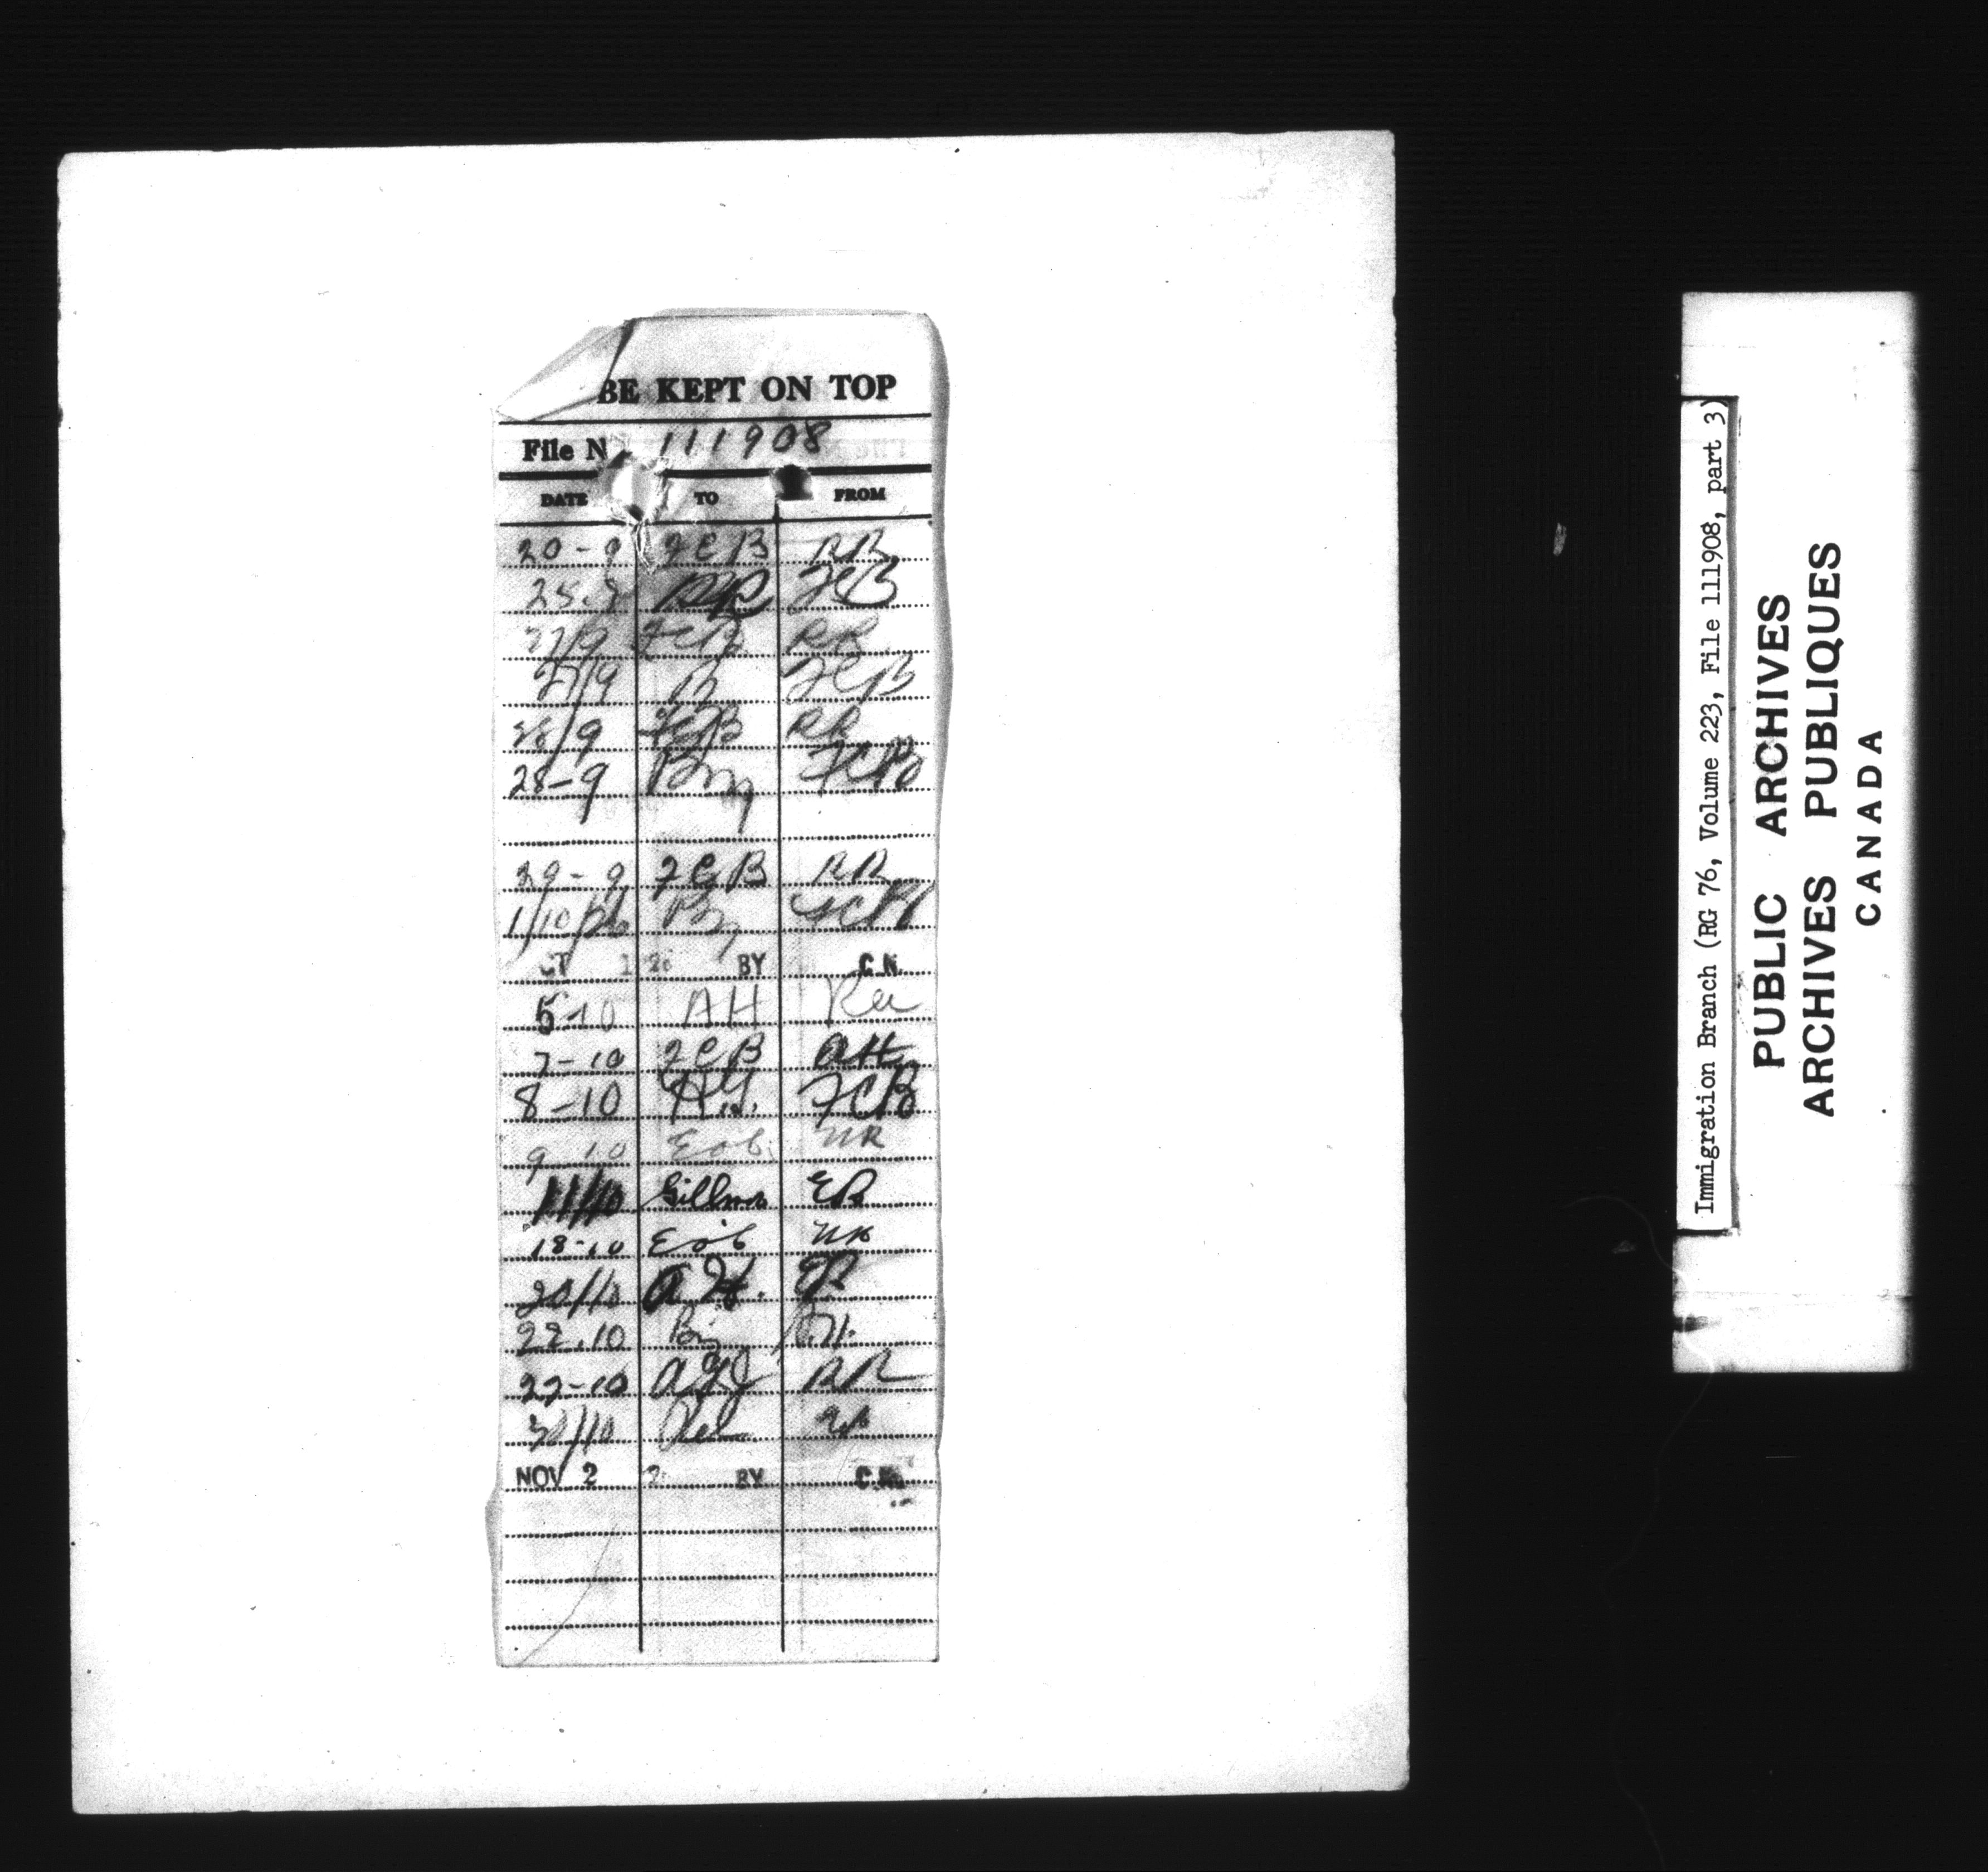 BE KEPT ON TOP
File N 111908
DATE TO FROM
20-9 FCB RR
25.9 RR FCB
27/9 FCB RR
27/9 FCB
28/9 FCB RR
28-9 FCB
29-9 FCB RR
1/10/26 FCB
CT 1 26 BY C.N.
5-10 AH
7-10 FCB AH
8-10 FCB
9 10 EoB NR
11/10 Gillmor EB
18-10 EoB NR
20/10 A.H. EB
22.10
27-10 RR
30/10
NOV 2 2 BY C.N.
Immigration Branch (RG 76, Volume 223, File 111908, part 3)
PUBLIC ARCHIVES
ARCHIVES PUBLIQUES
CANADA